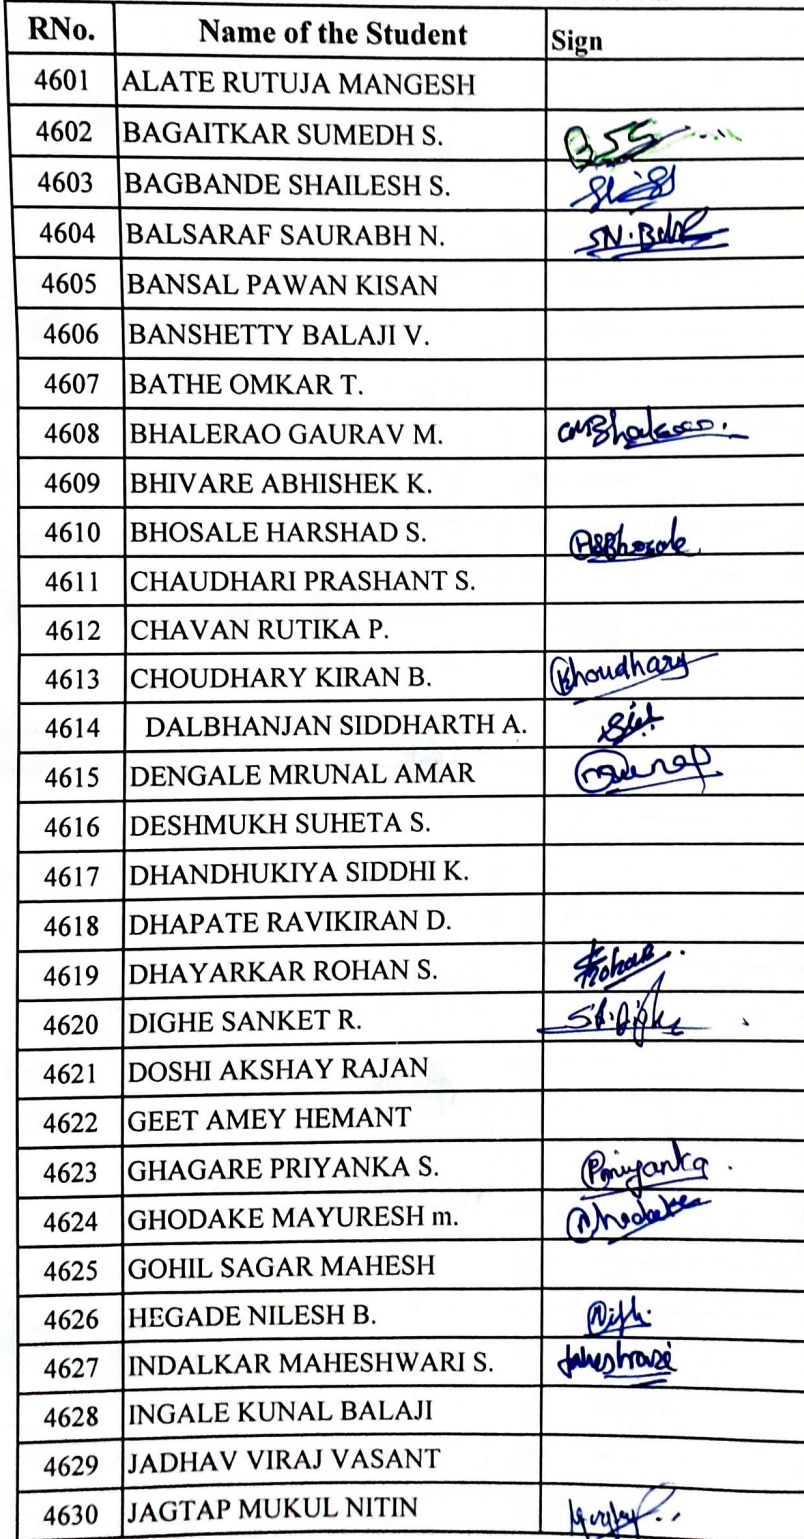 RNo. Name of the Student Sign
4601 ALATE RUTUJA MANGESH
4602 BAGAITKAR SUMEDH S. BSS
4603 BAGBANDE SHAILESH S.
4604 BALSARAF SAURABH N.
4605 BANSAL PAWAN KISAN
4606 BANSHETTY BALAJI V.
4607 BATHE OMKAR T.
4608 BHALERAO GAURAV M.
4609 BHIVARE ABHISHEK K.
4610 BHOSALE HARSHAD S. HSBhosale
4611 CHAUDHARI PRASHANT S.
4612 CHAVAN RUTIKA P.
4613 CHOUDHARY KIRAN B. Khoudhary
4614 DALBHANJAN SIDDHARTH A.
4615 DENGALE MRUNAL AMAR
4616 DESHMUKH SUHETA S.
4617 DHANDHUKIYA SIDDHI K.
4618 DHAPATE RAVIKIRAN D.
4619 DHAYARKAR ROHAN S.
4620 DIGHE SANKET R.
4621 DOSHI AKSHAY RAJAN
4622 GEET AMEY HEMANT
4623 GHAGARE PRIYANKA S. Priyanka
4624 GHODAKE MAYURESH m.
4625 GOHIL SAGAR MAHESH
4626 HEGADE NILESH B.
4627 INDALKAR MAHESHWARI S.
4628 INGALE KUNAL BALAJI
4629 JADHAV VIRAJ VASANT
4630 JAGTAP MUKUL NITIN